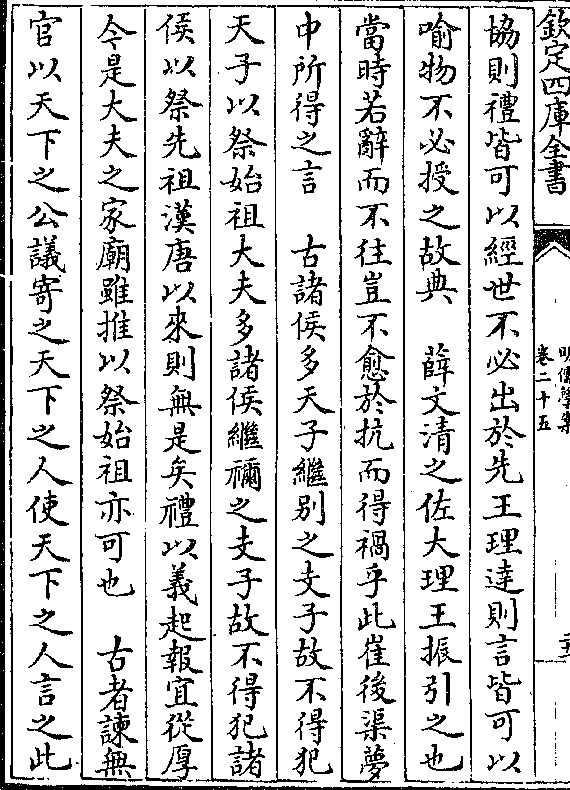 欽定四庫全書
明儒學案
卷二十五
協則禮皆可以經世不必出於先王理達則言皆可以
喻物不必授之故典　薛文清之佐大理王振引之也
當時若辭而不往豈不愈於抗而得禍乎此崔後渠夢
中所得之言　古諸侯多天子繼别之支子故不得犯
天子以祭始祖大夫多諸侯繼禰之支子故不得犯諸
侯以祭先祖漢唐以來則無是矣禮以義起報宜從厚
今是大夫之家廟雖推以祭始祖亦可也　古者諫無
官以天下之公議寄之天下之人使天下之人言之此